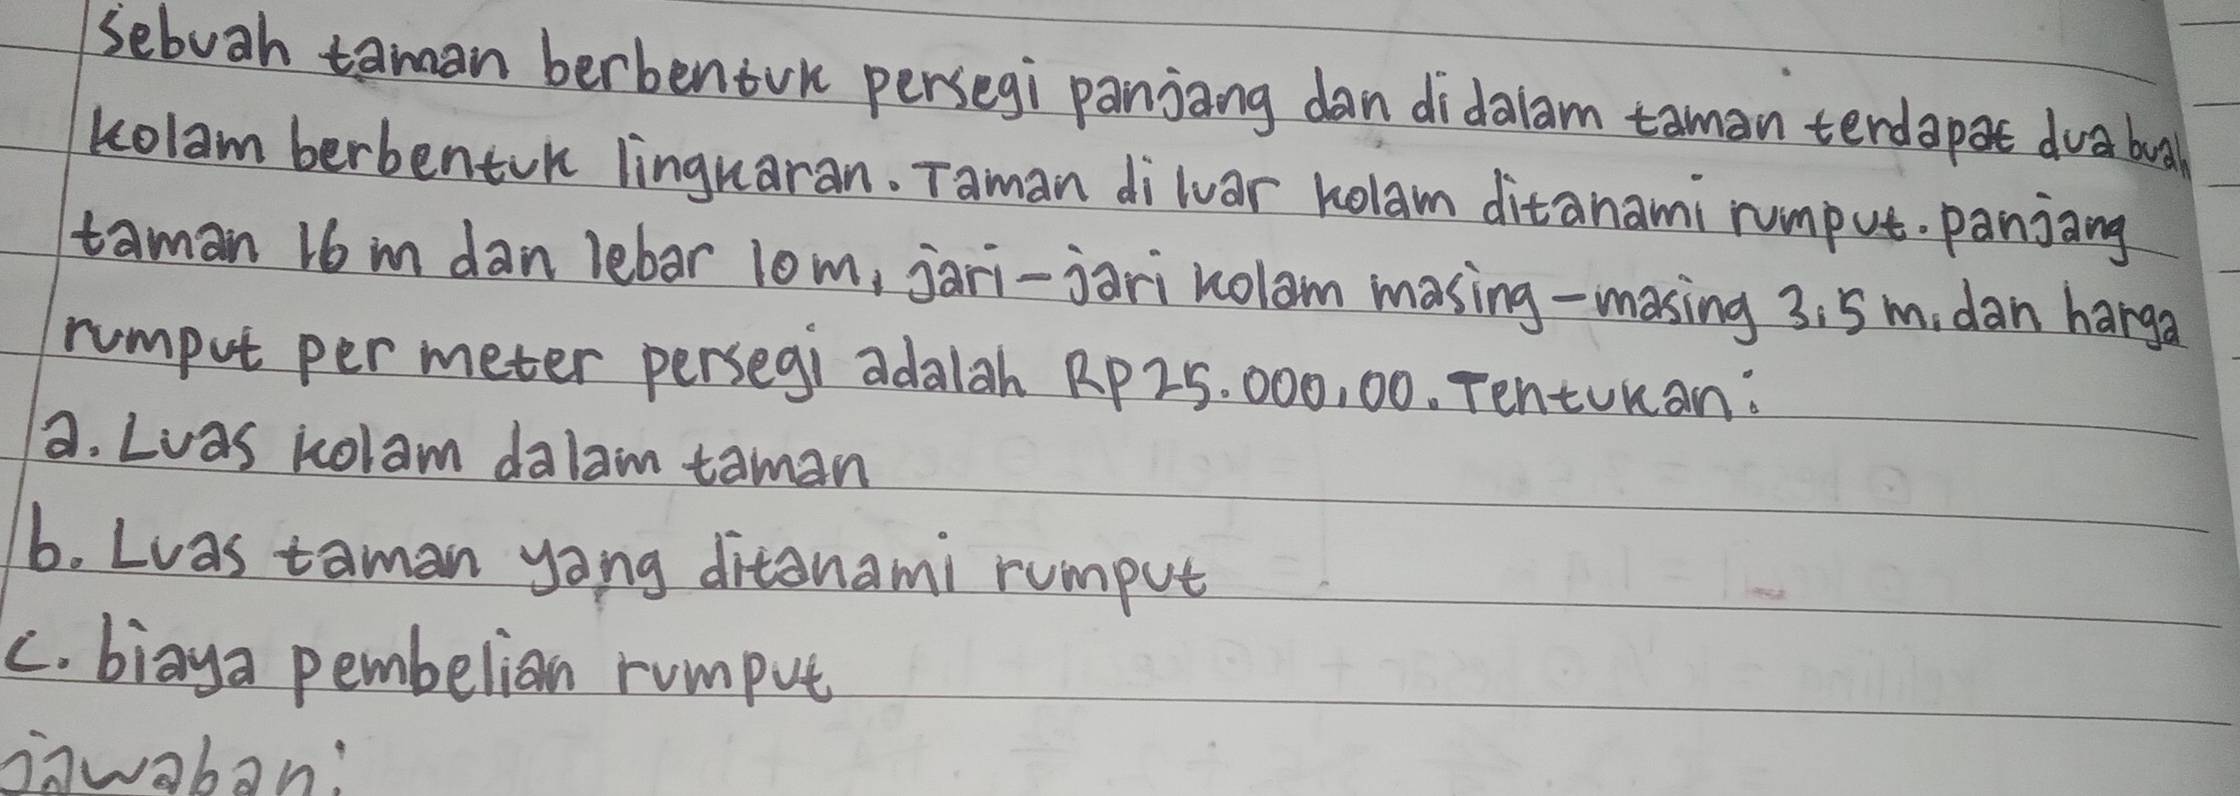 Sebuah taman berbentuk persegi panjang dan di dalam taman terdapat dua buah
kolam berbentuk lingkaran. Taman di luar kolam ditanami rumput. panjang
taman 16 m dan lebar 10 m, jari-jari kolam masing-masing 3,5 m, dan harga
rumput per meter persegi adalah Rp25.000,00. Tentukan:
a. Luas kolam dalam taman
b. Luas taman yang ditanami rumput
c. biaya pembelian rumput
jawaban: